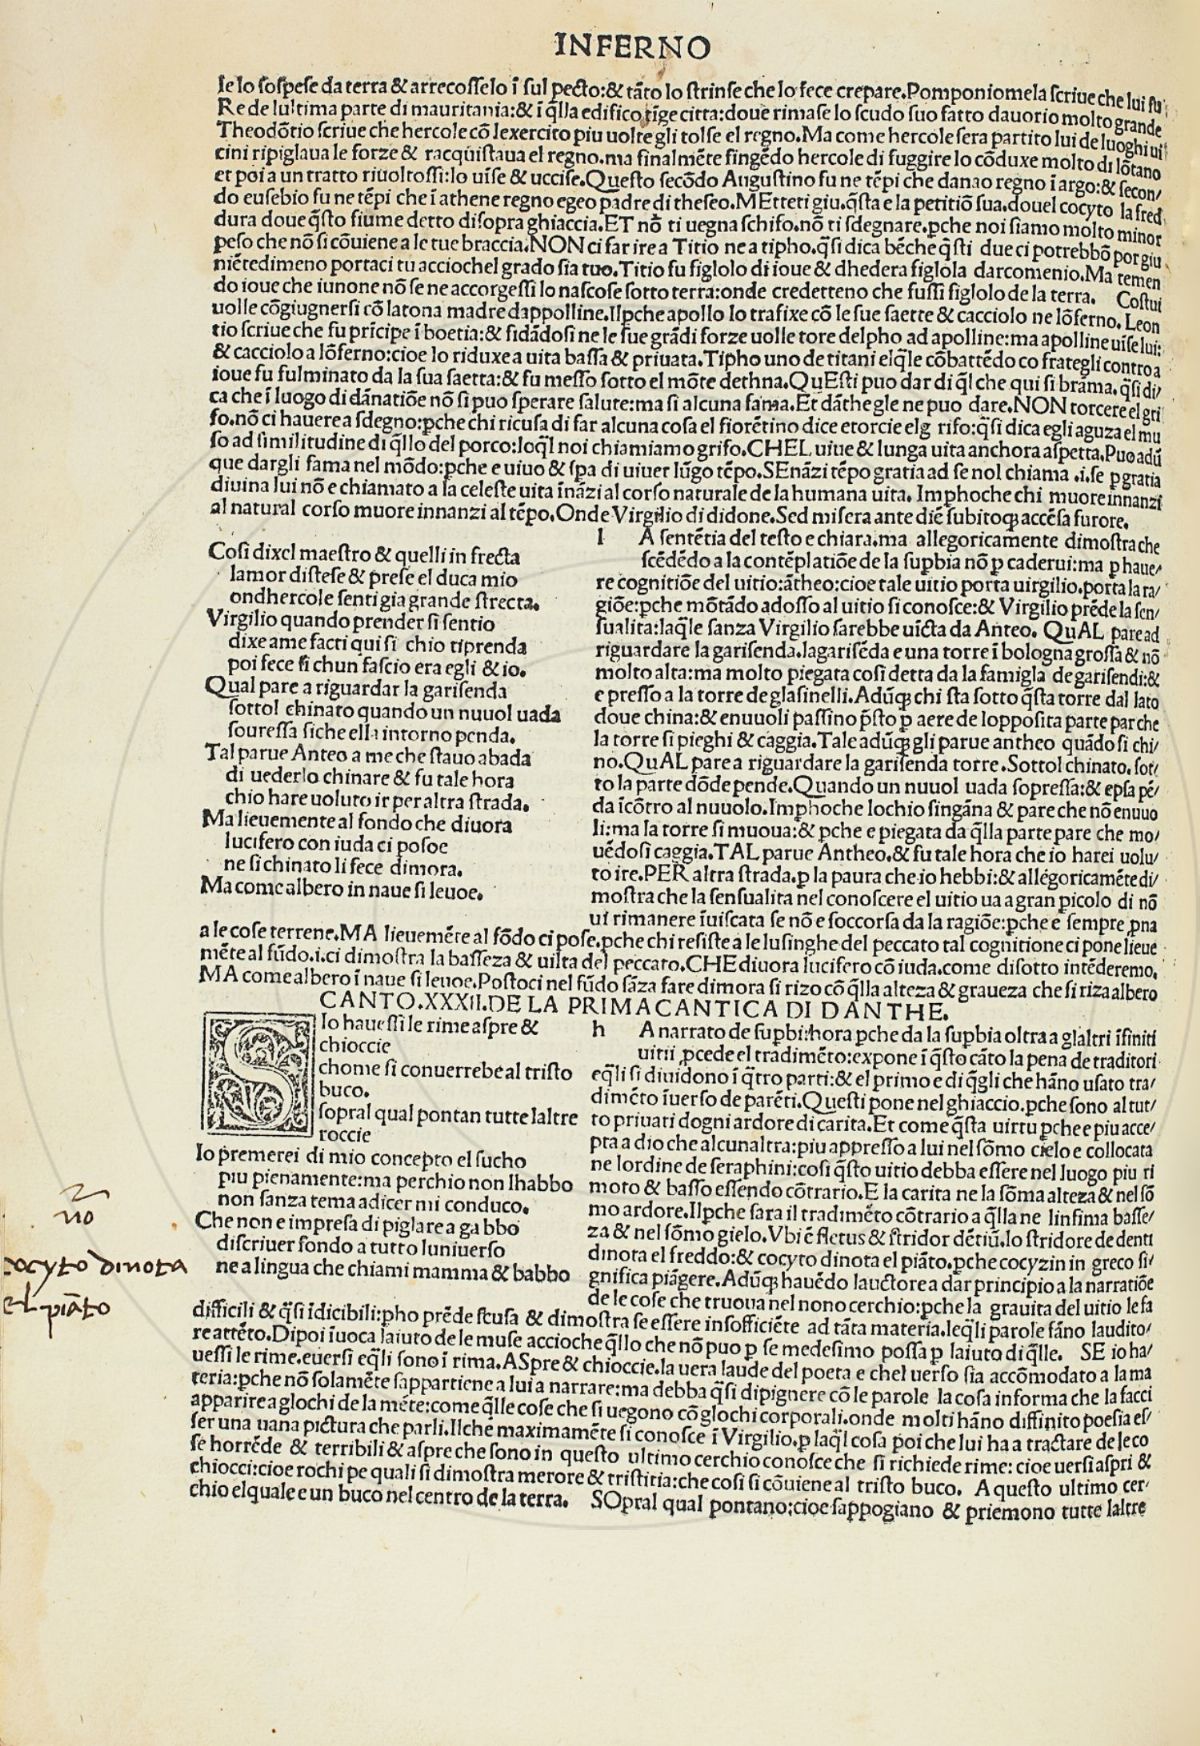 INFERNO
le lo ſoſpeſe da terra & arrecoſſelo ĩ ſul pecto:& tãto lo ſtrinſe che lo fece crepare.Pomponiomela ſcriue che lui fu
Re de lultima parte di mauritania:& ĩ q̃lla edifico tĩge citta:doue rimaſe lo ſcudo ſuo fatto dauorio molto grande
Theodõtio ſcriue che hercole cõ lexercito piu uolte gli tolſe el regno.Ma come hercole ſera partito lui de luoghi ui
cini ripiglaua le forze & racquiſtaua el regno.ma finalmẽte fingẽdo hercole di fuggire lo cõduxe molto di lõtano
et poi a un tratto riuoltoſſi:lo uiſe & ucciſe.Queſto ſecõdo Auguſtino fu ne tẽpi che danao regno ĩ argo:& ſecon/
do euſebio fu ne tẽpi che ĩ athene regno egeo padre di theſeo.MEtteti giu.q̃ſta e la petitiõ ſua.douel cocyto la fred
dura doue q̃ſto fiume detto diſopra ghiaccia.ET nõ ti uegna ſchifo.nõ ti ſdegnare.ꝑche noi ſiamo molto minor
peſo che nõ ſi cõuiene a le tue braccia.NON ci far ire a Titio ne a tipho.q̃ſi dica bẽche q̃ſti due ci potrebbõ por giu
niẽtedimeno portaci tu acciochel grado ſia tuo.Titio fu figlolo di ioue & dhedera figlola darcomenio.Ma temen
do ioue che iunone nõ ſe ne accorgeſſi lo naſcoſe ſotto terra:onde credetteno che fuſſi figlolo de la terra. Coſtui
uolle cõgiugnerſi cõ latona madre dappolline.Ilꝑche apollo lo trafixe cõ le ſue ſaette & cacciolo ne lõferno.Leon
tio ſcriue che fu prĩcipe ĩ boetia:& fidãdoſi ne le ſue grãdi forze uolle torre delpho ad apolline:ma apolline uiſe lui:
& cacciolo a lõferno:cioe lo riduxe a uita baſſa & priuata.Tipho uno de titani elq̃le cõbattẽdo co frategli contro a
ioue fu fulminato da la ſua ſaetta:& fu meſſo ſotto el mõte dethna.QuEſti puo dar di q̃l che qui ſi brãma.q̃ſi di/
ca che ĩ luogo di dãnatiõe nõ ſi puo ſperare ſalute:ma ſi alcuna fama.Et dãthe gle ne puo dare.NON torcere el gri
fo.nõ ci hauere a ſdegno:ꝑche chi ricuſa di far alcuna coſa el fiorẽtino dice etorcie elg rifo:q̃ſi dica egli aguza el mu
ſo ad ſimilitudine di q̃llo del porco:loq̃l noi chiamiamo grifo.CHEL uiue & lunga uita anchora aſpetta.Puo adũ
que dargli fama nel mõdo:ꝑche e uiuo & ſpa di uiuer lũgo tẽpo.SEnãzi tẽpo gratia ad ſe nol chiama .i.ſe ꝑ gratia
diuina lui nõ e chiamato a la celeſte uita ĩnãzi al corſo naturale de la humana uita. Imꝑhoche chi muore innanzi
al natural corſo muore innanzi al tẽpo.Onde Virgilio di didone.Sed miſera ante diẽ ſubitoqȝ accẽſa furore.
Coſi dixel maeſtro & quelli in frecta
lamor diſteſe & preſe el duca mio
ondhercole ſenti gia grande ſtrecta.
Virgilio quando prender ſi ſentio
dixe ame facti qui ſi chio tiprenda
poi fece ſi chun faſcio era egli & io.
Qual pare a riguardar la gariſenda
ſottol chinato quando un nuuol uada
ſoureſſa ſiche ella intorno penda.
Tal parue Anteo a me che ſtauo abada
di uederlo chinare & fu tale hora
chio hare uoluto ir per altra ſtrada.
Ma lieuemente al fondo che diuora
lucifero con iuda ci poſoe
ne ſi chinato li fece dimora.
Ma come albero in naue ſi leuoe.
l A ſentẽtia del teſto e chiara.ma allegoricamente dimoſtra che
ſcẽdẽdo a la contẽplatiõe de la ſupbia nõ ꝑ caderui:ma ꝑ haue/
re cognitiõe del uitio:ãtheo:cioe tale uitio porta uirgilio.porta la ra/
giõe:ꝑche mõtãdo adoſſo al uitio ſi conoſce:& Virgilio prẽde la ſen/
ſualita:laq̃le ſanza Virgilio ſarebbe uĩcta da Anteo. QuAL pare ad
riguardare la gariſenda.lagariſẽda e una torre ĩ bologna groſſa & nõ
molto alta:ma molto piegata coſi detta da la famigla de gariſendi:&
e preſſo a la torre de glaſinelli.Adũqȝ chi ſta ſotto q̃ſta torre dal lato
doue china:& enuuoli paſſino p̃ſto ꝑ aere de loppoſita parte par che
la torre ſi pieghi & caggia.Tale adũqȝ gli parue antheo quãdo ſi chi/
no.QuAL pare a riguardare la gariſenda torre.Sottol chinato.ſot/
to la parte dõde pende.Quando un nuuol uada ſopreſſa:& epſa pẽ/
da ĩcõtro al nuuolo.Imꝑhoche lochio ſingãna & pare che nõ enuuo
li:ma la torre ſi muoua:& ꝑche e piegata da q̃lla parte pare che mo/
uẽdoſi caggia.TAL parue Antheo.& fu tale hora che io harei uolu/
to ire.PER altra ſtrada.ꝑ la paura che io hebbi:& allegoricamẽte di/
moſtra che la ſenſualita nel conoſcere el uitio ua a gran picolo di nõ
ui rimanere ĩuiſcata ſe nõ e ſoccorſa da la ragiõe:ꝑche e ſempre ꝓna
a le coſe terrene.MA lieuemẽte al fõdo ci poſe.ꝑche chi reſiſte a le luſinghe del peccato tal cognitione ci pone lieue
mẽte al fũdo.i.ci dimoſtra la baſſeza & uilta del peccato.CHE diuora lucifero cõ iuda.come diſotto intẽderemo.
MA come albero ĩ naue ſi leuoe.Poſtoci nel fũdo ſãza fare dimora ſi rizo cõ q̃lla alteza & graueza che ſi riza albero
CANTO.XXXII.DE LA PRIMA CANTICA DI DANTHE.
SIo haueſſi le rime aſpre &
chioccie
chome ſi conuerrebe al triſto
buco.
ſopral qual pontan tutte laltre
roccie
Io premerei di mio concepto el ſucho
piu pienamente:ma perchio non lhabbo
non ſanza tema adicer mi conduco.
Che non e impreſa di piglare a ga bbo
diſcriuer fondo a tutto luniuerſo
ne a lingua che chiami mamma & babbo
h A narrato de ſupbi:hora ꝑche da la ſupbia oltra a glaltri ĩfiniti
uitii ꝓcede el tradimẽto:expone ĩ q̃ſto cãto la pena de traditori
eq̃li ſi diuidono ĩ q̃tro parti:& el primo e di q̃gli che hãno uſato tra/
dimẽto ĩuerſo de parẽti.Queſti pone nel ghiaccio.ꝑche ſono al tut/
to priuati dogni ardore di carita.Et come q̃ſta uirtu ꝑche e piu acce/
pta a dio che alcunaltra:piu appreſſo a lui nel ſõmo cielo e collocata
ne lordine de ſeraphini:coſi q̃ſto uitio debba eſſere nel luogo piu ri
moto & baſſo eſſendo cõtrario.E la carita ne la ſõma alteza & nel ſõ
mo ardore.Ilꝑche ſara il tradimẽto cõtrario a q̃lla ne linfima baſſe/
za & nel ſõmo gielo.Vbi ẽ fletus & ſtridor dẽtiũ.lo ſtridore de denti
dinota el freddo:& cocyto dinota el piãto.ꝑche cocyzin in greco ſi/
gnifica piãgere.Adũqȝ hauẽdo lauctore a dar principio a la narratiõe
de le coſe che truoua nel nono cerchio:ꝑche la grauita del uitio le fa
difficili & q̃ſi ĩdicibili:ꝑho prẽde ſcuſa & dimoſtra ſe eſſere inſofficiẽte ad tãta materia.leq̃li parole fãno laudito/
re attẽto.Dipoi ĩuoca laiuto de le muſe accioche q̃llo che nõ puo ꝑ ſe medeſimo poſſa ꝑ laiuto di q̃lle. SE io ha/
ueſſi le rime.euerſi eq̃li ſono ĩ rima.ASpre & chioccie.la uera laude del poeta e chel uerſo ſia accõmodato a la ma
teria:ꝑche nõ ſolamẽte ſappartiene a lui a narrare:ma debba q̃ſi dipignere cõ le parole la coſa informa che la facci
apparire a glochi de la mẽte:come q̃lle coſe che ſi uegono cõ glochi corporali.onde molti hãno diffinito poeſia eſ/
ſer una uana pictura che parli.Ilche maximamẽte ſi conoſce ĩ Virgilio.ꝑ laq̃l coſa poi che lui ha a tractare de le co
ſe horrẽde & terribili & aſpre che ſono in queſto ultimo cerchio conoſce che ſi richiede rime: cioe uerſi aſpri &
chiocci:cioe rochi pe quali ſi dimoſtra merore & triſtitia:che coſi ſi cõuiene al triſto buco. A queſto ultimo cer/
chio elquale e un buco nel centro de la terra. SOpral qual pontano:cioe ſappogiano & priemono tutte laltre
no
cocyto dinota
el piãto